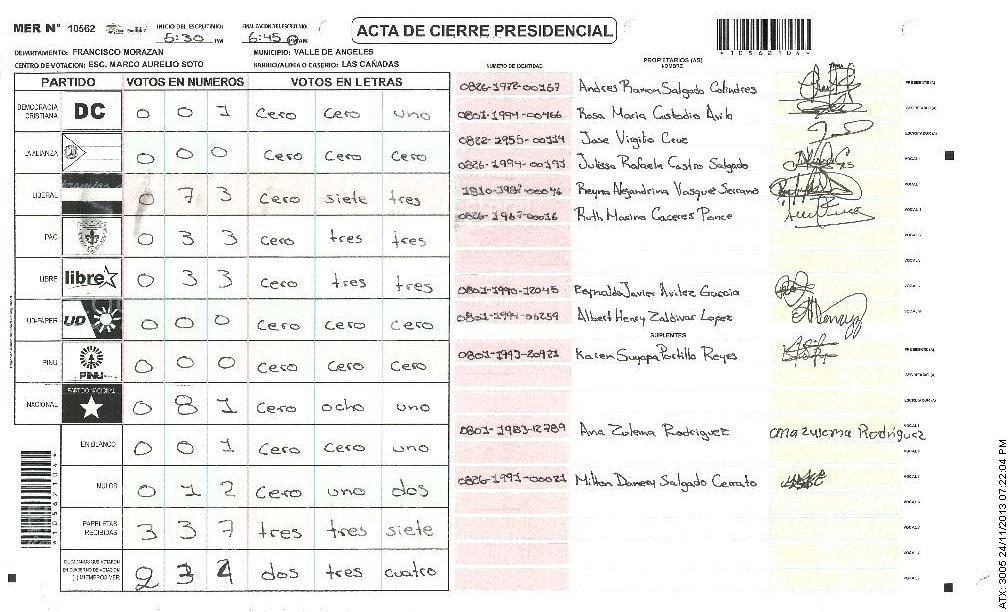 MER N° 10562
INICIO DEL ESCRUTINIO:
5:30 PM
FINALIZACION DE ESCRUTINIO:
6:45 PM AM
ACTA DE CIERRE PRESIDENCIAL
1 0 5 6 2 1 0 4
DEPARTAMENTO: FRANCISCO MORAZAN
MUNICIPIO: VALLE DE ANGELES
CENTRO DE VOTACION: ESC. MARCO AURELIO SOTO
BARRIO/ALDEA O CASERIO: LAS CAÑADAS
PARTIDO VOTOS EN NUMEROS VOTOS EN LETRAS
DEMOCRACIA CRISTIANA DC 0 0 1 cero cero uno
LA ALIANZA 0 0 0 cero cero cero
LIBERAL 0 7 3 cero siete tres
PAC 0 3 3 cero tres tres
LIBRE libre 0 3 3 cero tres tres
UD-FAPER UD 0 0 0 cero cero cero
PINU PINU 0 0 0 cero cero cero
NACIONAL PARTIDO NACIONAL 0 8 1 cero ocho uno
EN BLANCO 0 0 1 cero cero uno
NULOS 0 1 2 cero uno dos
PAPELETAS RECIBIDAS 3 3 7 tres tres siete
CIUDADANOS QUE VOTARON EN CUADERNO DE VOTACION (+) MIEMBROS MER 2 3 4 dos tres cuatro
NUMERO DE IDENTIDAD
PROPIETARIOS (AS)
NOMBRE
0826-1972-00167 Andres Ramon Salgado Colindres PRESIDENTE(A)
0801-1994-00466 Rosa Maria Custodio Avila SECRETARIO(A)
0822-1955-00114 Jose Virgilio Cruz ESCRUTADOR(A)
0826-1994-00191 Julissa Rafaela Castro Salgado VOCAL I
Reyna Alejandrina Vasquez Serrano VOCAL
0826-1967-00016 Ruth Marina Caceres Ponce VOCAL
VOCAL
VOCAL
0801-1990-12045 Reynaldo Javier Avilez Garcia VOCAL
0801-1994-06259 Albert Henry Zaldivar Lopez VOCAL
SUPLENTES
0801-1993-20921 Karen Suyapa Portillo Reyes PRESIDENTE(A)
SECRETARIO(A)
ESCRUTADOR(A)
0801-1983-12789 Ana Zulema Rodriguez ana zulema Rodriguez VOCAL
VOCAL
0826-1991-00021 Milton Danery Salgado Cerrato VOCAL
VOCAL
VOCAL
VOCAL
VOCAL
1 0 5 6 2 1 0 4
ATX: 3005 24/11/2013 07:22:04 PM